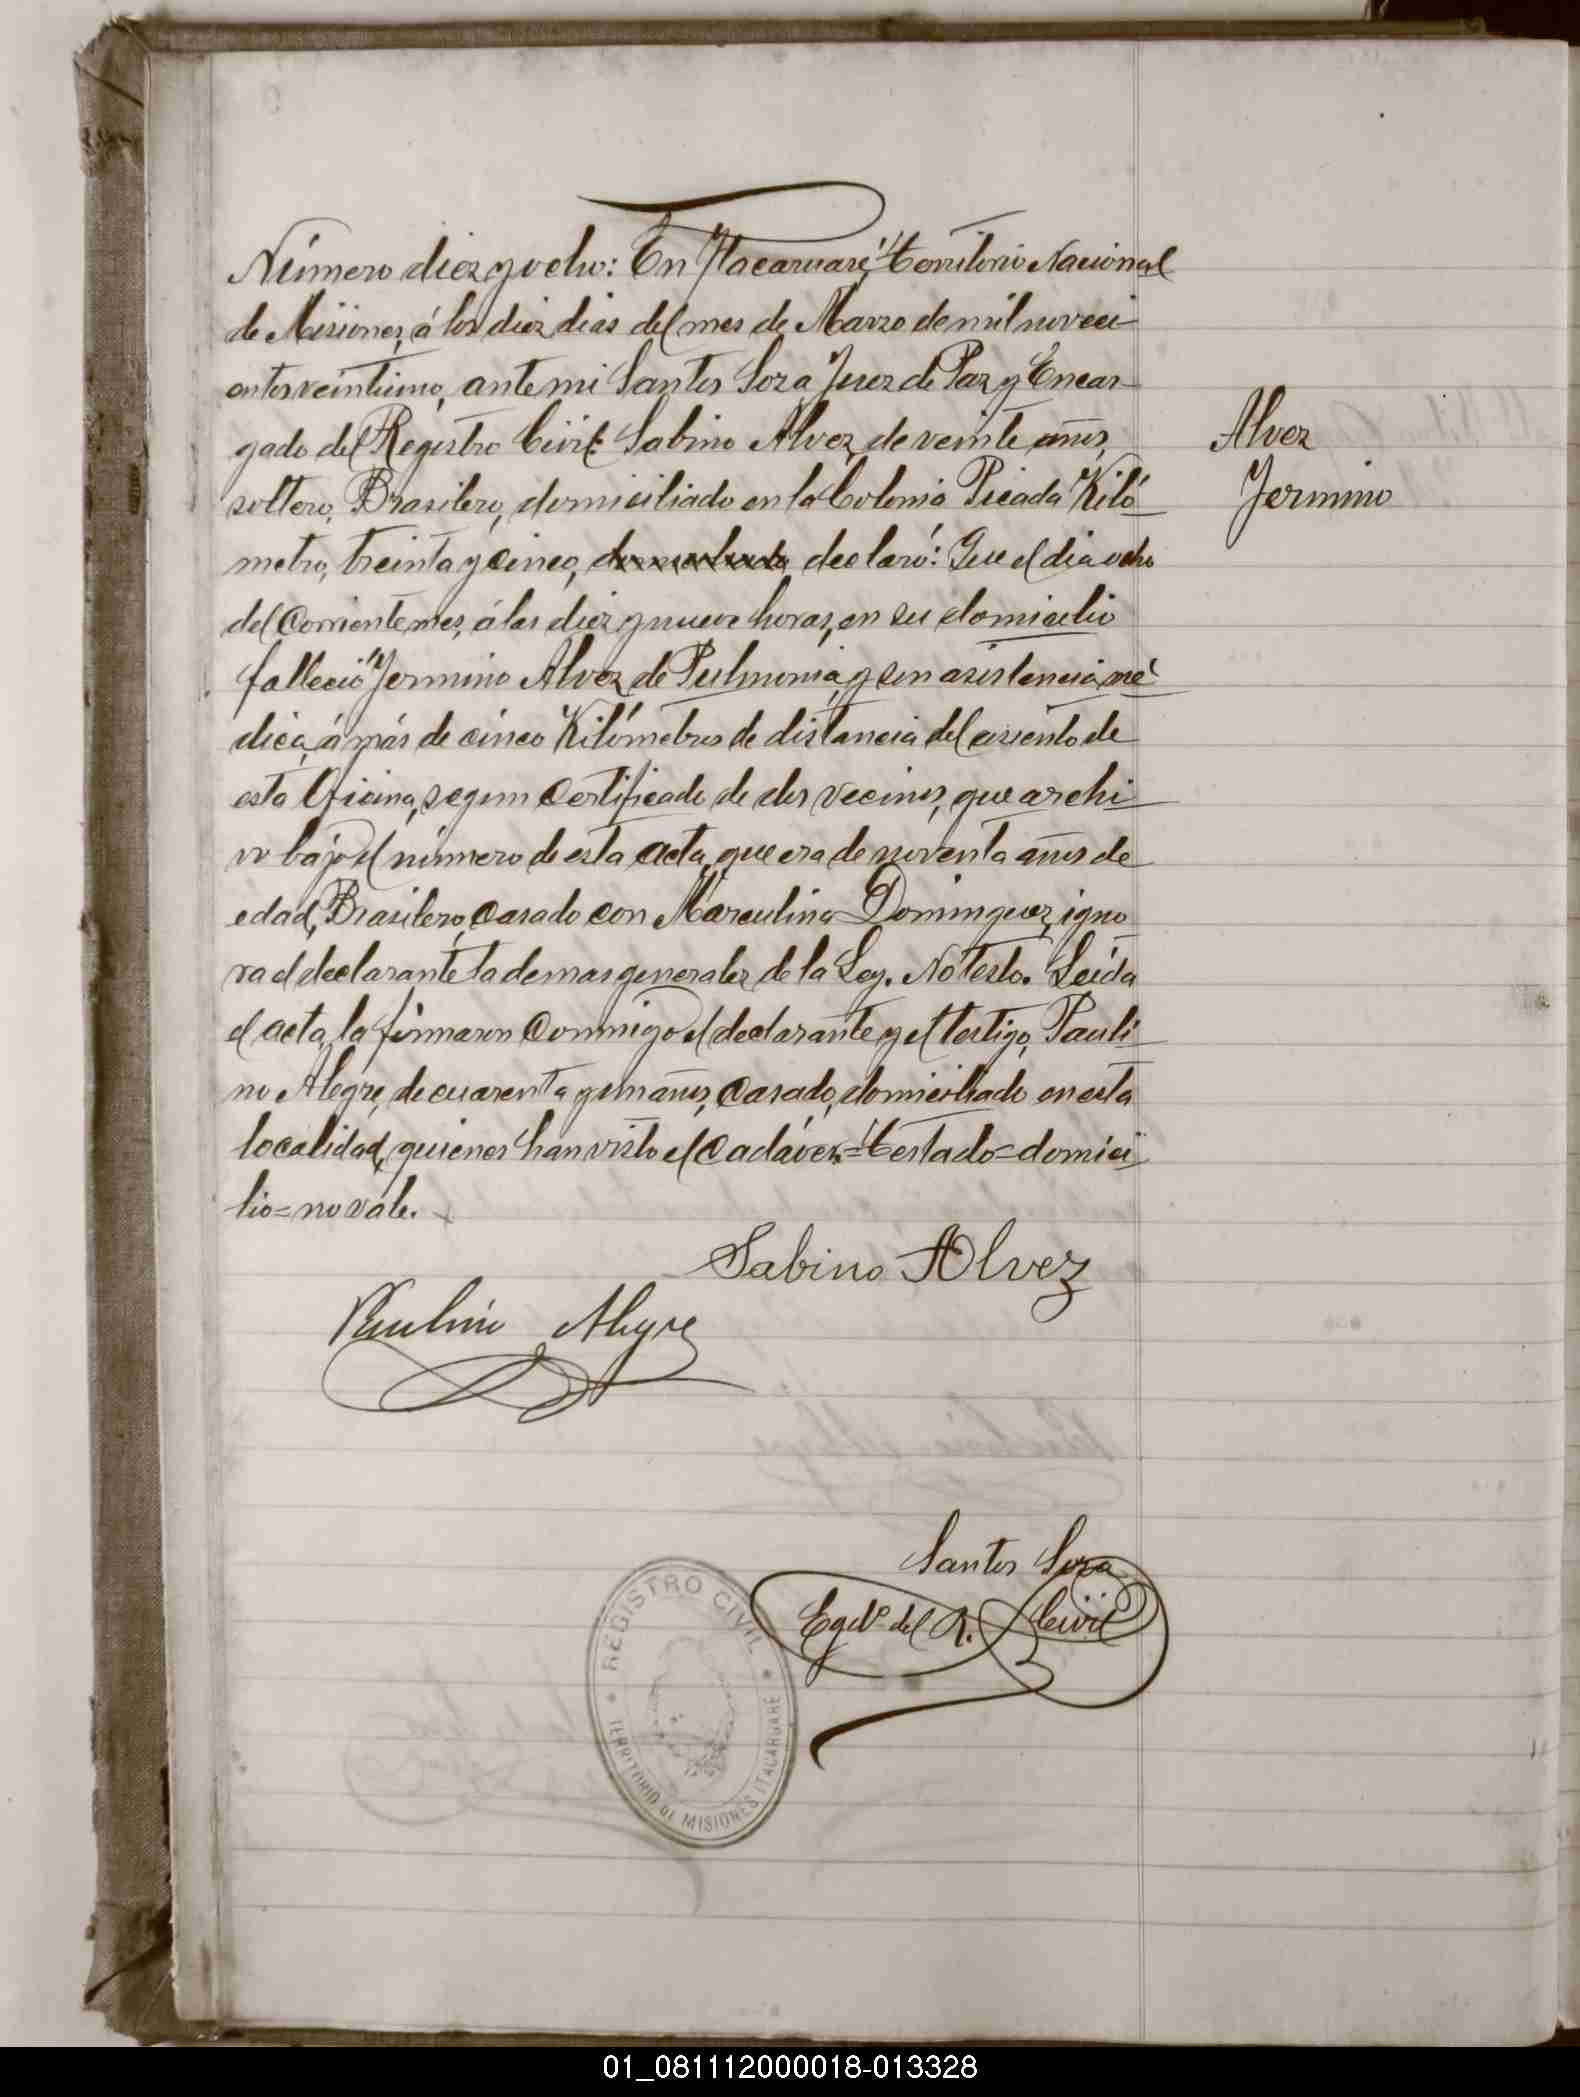 Número diez y ocho: En Itacaruaré, Territorio Nacional
de Misiones, á los diez dias del mes de Marzo de mil noveci
entos veintiuno, ante mi Santos Soza Juez de Paz y Encar-
gado del Registro Civil: Sabino Alvez, de veinte años,
soltero, Brasilero, domiciliado en la Colonia Picada Kiló
metro, treinta y cinco, declaró: Que el dia ocho
del Corriente mes, á las diez y nueve horas, en su domicilio
falleció Jermino Alvez de Pulmonia, y sin asistencia mé
dica, á más de cinco Kilómetros de distancia del asiento de
esta Oficina, segun Certificado de dos vecinos, que archi
vo bajo el número de esta acta, que era de noventa años de
edad, Brasilero, Casado con Marculina Dominguez, igno
ra el declarante la demas generales de la Ley. No testo. Leída
el acta, la firmaron Conmigo el declarante y el testigo, Pauli
no Alegre, de cuarenta y un años, Casado, domiciliado en esta
localidad, quienes han visto el Cadáver.=Testado=domici
lio=no vale.
Alvez
Jermino
Sabino Alvez
Paulino Alegre
Santos Soza
Egdº del R. Civil
REGISTRO CIVIL
TERRITORIO DE MISIONES ITACARUARE
01_081112000018-013328